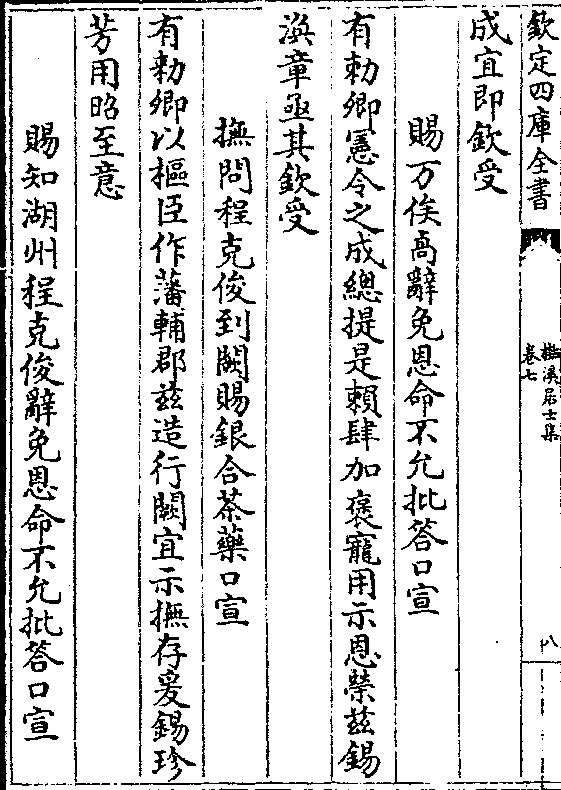 欽定四庫全書
檆溪居士集
卷七
八
成宜即欽受
賜万俟卨辭免恩命不允批答口宣
有勅卿憲令之成總提是賴肆加褒寵用示恩榮兹錫
渙章亟其欽受
撫問程克俊到闕賜銀合茶藥口宣
有勅卿以樞臣作藩輔郡兹造行闕宜示撫存爰錫珍
芳用昭至意
賜知湖州程克俊辭免恩命不允批答口宣